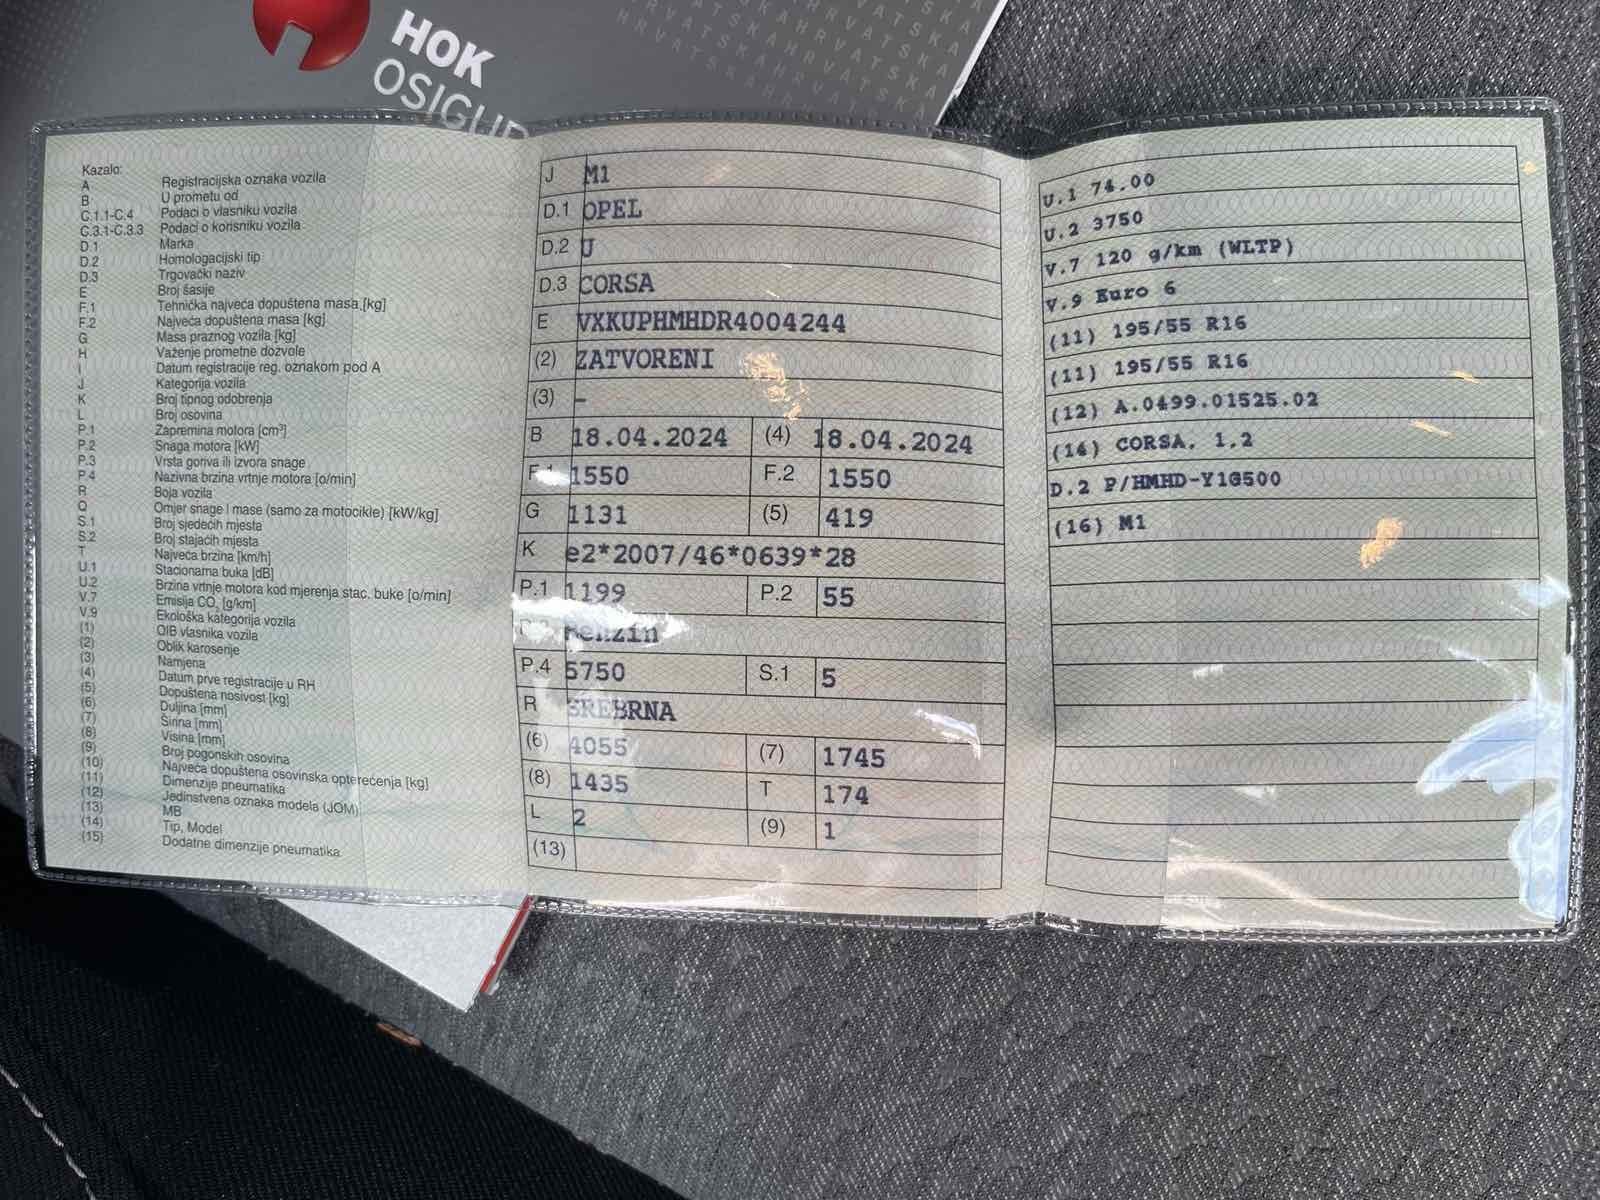 HOK
OSIGUR
Kazalo:
A Registracijska oznaka vozila
B U prometu od
C.1.1-C.4 Podaci o vlasniku vozila
C.3.1-C.3.3 Podaci o korisniku vozila
D.1 Marka
D.2 Homologacijski tip
D.3 Trgovački naziv
E Broj šasije
F.1 Tehnička najveća dopuštena masa [kg]
F.2 Najveća dopuštena masa [kg]
G Masa praznog vozila [kg]
H Važenje prometne dozvole
I Datum registracije reg. oznakom pod A
J Kategorija vozila
K Broj tipnog odobrenja
L Broj osovina
P.1 Zapremina motora [cm³]
P.2 Snaga motora [kW]
P.3 Vrsta goriva ili izvora snage
P.4 Nazivna brzina vrtnje motora [o/min]
R Boja vozila
Q Omjer snage i mase (samo za motocikle) [kW/kg]
S.1 Broj sjedećih mjesta
S.2 Broj stajaćih mjesta
T Najveća brzina [km/h]
U.1 Stacionarna buka [dB]
U.2 Brzina vrtnje motora kod mjerenja stac. buke [o/min]
V.7 Emisija CO₂ [g/km]
V.9 Ekološka kategorija vozila
(1) OIB vlasnika vozila
(2) Oblik karoserije
(3) Namjena
(4) Datum prve registracije u RH
(5) Dopuštena nosivost [kg]
(6) Duljina [mm]
(7) Širina [mm]
(8) Visina [mm]
(9) Broj pogonskih osovina
(10) Najveća dopuštena osovinska opterećenja [kg]
(11) Dimenzije pneumatika
(12) Jedinstvena oznaka modela (JOM)
(13) MB
(14) Tip, Model
(15) Dodatne dimenzije pneumatika
J M1
D.1 OPEL
D.2 U
D.3 CORSA
E VXKUPHMHDR4004244
(2) ZATVORENI
(3) -
B 18.04.2024 (4) 18.04.2024
F.1 1550 F.2 1550
G 1131 (5) 419
K e2*2007/46*0639*28
P.1 1199 P.2 55
P.3 Benzin
P.4 5750 S.1 5
R SREBRNA
(6) 4055 (7) 1745
(8) 1435 T 174
L 2 (9) 1
(13)
U.1 74.00
U.2 3750
V.7 120 g/km (WLTP)
V.9 Euro 6
(11) 195/55 R16
(11) 195/55 R16
(12) A.0499.01525.02
(14) CORSA, 1.2
D.2 P/HMHD-Y1G500
(16) M1